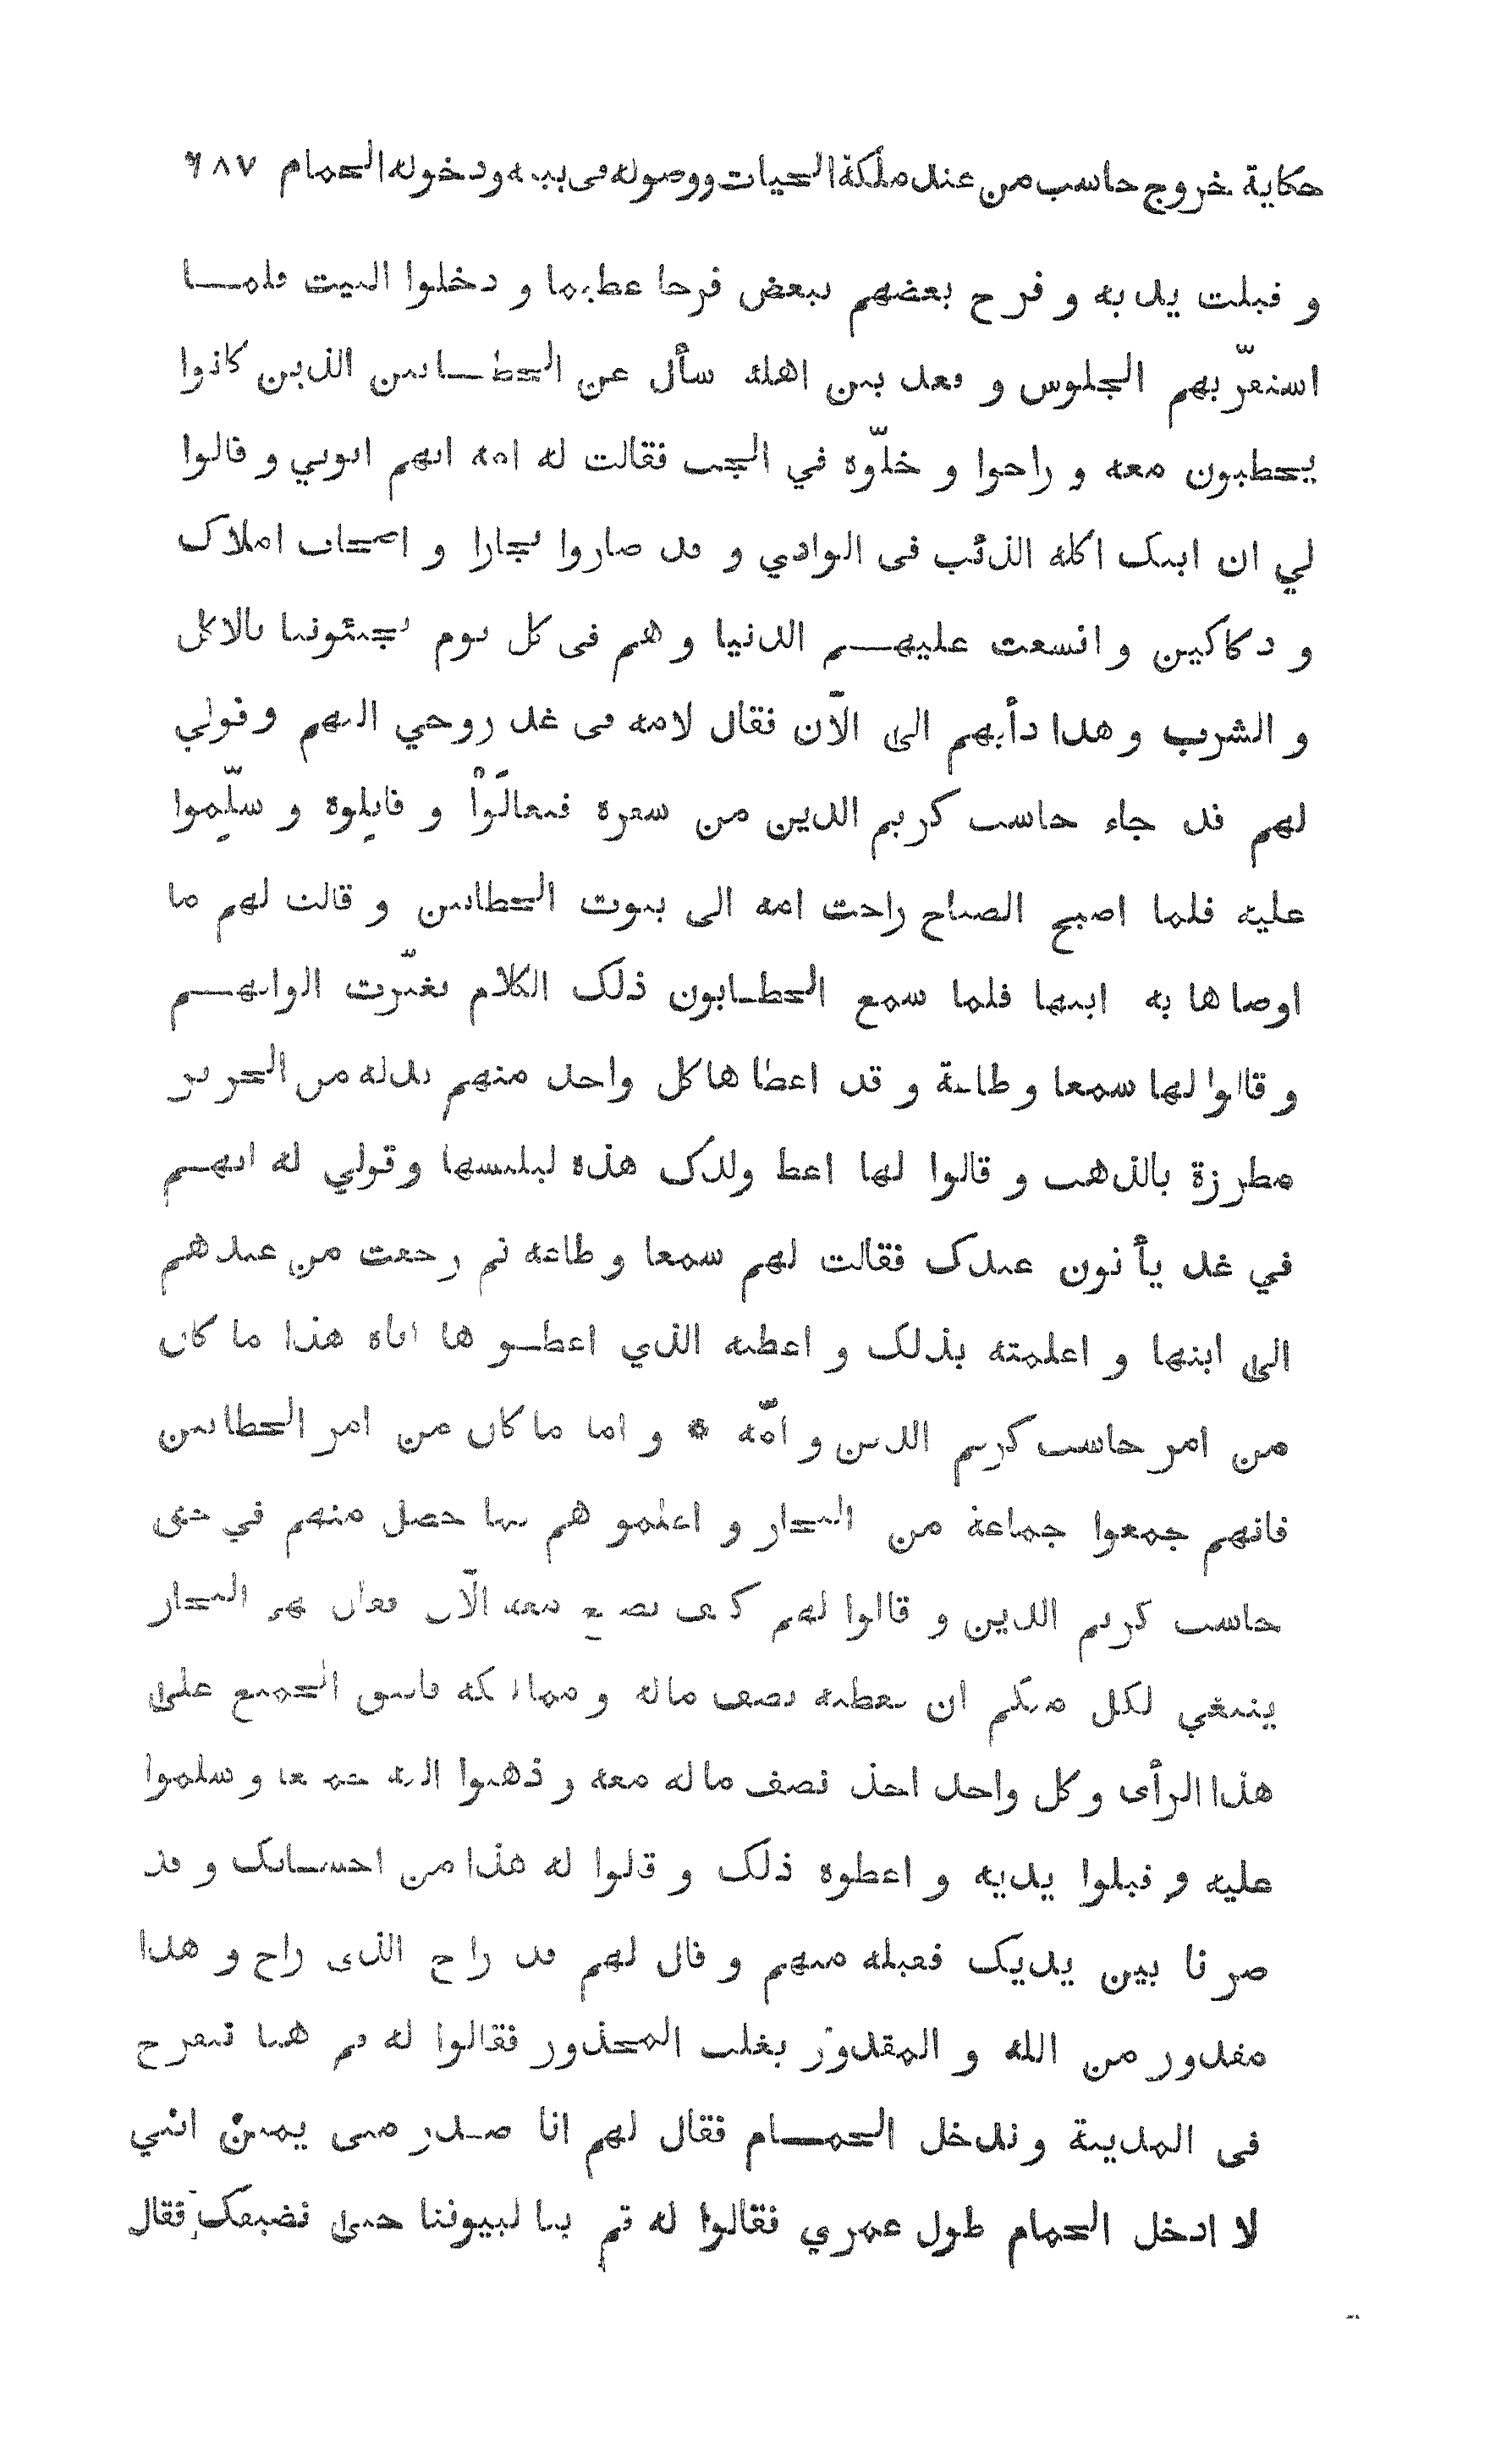 حكاية خروج حاسب من عند ملكة الحيات ووصوله فى بيته ودخوله الحمام ٦٨٧
و قبلت يديه و فرح بعضهم ببعض فرحا عظيما و دخلوا البيت فلمـــا
استقرّ بهم الجلوس و قعد بين اهله سأل عن الحطـــابين الذين كانوا
يحطبون معه و راحوا و خلّوه في الجب فقالت له امه انهم اتوني و قالوا
لي ان ابنك اكله الذئب فى الوادي و قد صاروا تجارا و اصحاب املاك
و دكاكين و اتسعت عليهـــم الدنيا و هم فى كل يوم يجيئوننا بالاكل
و الشرب و هذا دأبهم الى الآن فقال لامه فى غد روحي اليهم و قولي
لهم قد جاء حاسب كريم الدين من سفره فتعالَوْا و قابِلوه و سلِّموا
عليه فلما اصبح الصباح راحت امه الى بيوت الحطابين و قالت لهم ما
اوصاها به ابنها فلما سمع الحطـابون ذلك الكلام تغيّرت الوانهـــم
و قالوا لها سمعا و طاعة و قد اعطا ها كل واحد منهم بدلة من الحرير
مطرزة بالذهب و قالوا لها اعط ولدك هذه ليلبسها وقولي له انهـــم
في غد يأتون عندك فقالت لهم سمعا و طاعة ثم رجعت من عندهم
الى ابنها و اعلمته بذلك و اعطته الذي اعطـــو ها اياه هذا ما كان
من امر حاسب كريم الدين و امّه * و اما ما كان من امر الحطابين
فانهم جمعوا جماعة من التجار و اعلمو هم بما حصل منهم في حق
حاسب كريم الدين و قالوا لهم كيف نصنع معه الآن فقال لهم التجار
ينبغي لكل منكم ان يعطيه نصف ماله و مماليكه فاتفق الجميع على
هذا الرأى و كل واحد اخذ نصف ماله معه و ذهبوا اليه جميعا و سلموا
عليه و قبلوا يديه و اعطوه ذلك و قالوا له هذا من احســـانك و قد
صرنا بين يديك فقبله منهم و قال لهم قد راح الذى راح و هذا
مقدور من الله و المقدور يغلب المحذور فقالوا له قم بنا نتفرج
فى المدينة و ندخل الحمـــام فقال لهم انا صـدر منى يمينٌ انني
لا ادخل الحمام طول عمري فقالوا له قم بنا لبيوتنا حتى نضيفك فقال